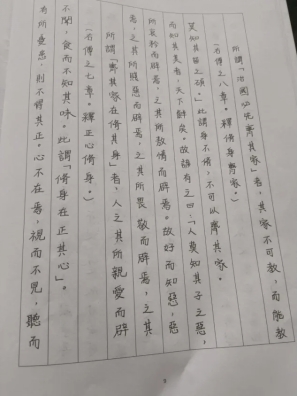 有所憂患,則不得其正。心不在焉,視而不見,聽而
不聞,食而不知其味。此謂「脩身在正其心」。
(右傳之七章。釋正心脩身。)
所謂「齊其家在脩其身」者,人之其所親愛而辟
焉,之其所賤惡而辟焉,之其所畏敬而辟焉,之其
所哀矜而辟焉,之其所敖惰而辟焉。故好而知惡,惡
而知其美者,天下鮮矣。故諺有之曰:「人莫知其子之惡,
莫知其苗之碩。」此謂身不脩,不可以齊其家。
(右傳之八章。釋脩身齊家。)
所謂「治國必先齊其家」者,其家不可教,而能教